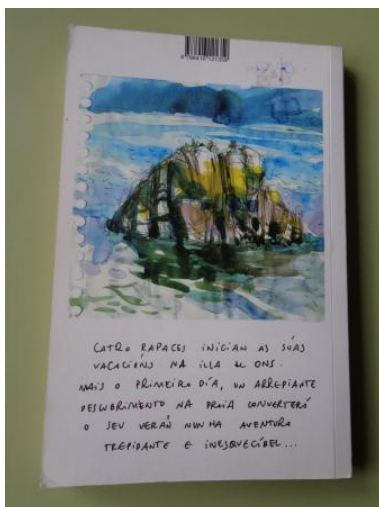 CATRO RAPACES INICIAN AS SÚAS
VACACIÓNS NA ILLA DE ONS.
MAIS O PRIMEIRO DÍA, UN ARREPIANTE
DESCUBRIMENTO NA PRAIA CONVERTERÁ
O SEU VERÁN NUNHA AVENTURA
TREPIDANTE E INESQUECÍBEL...